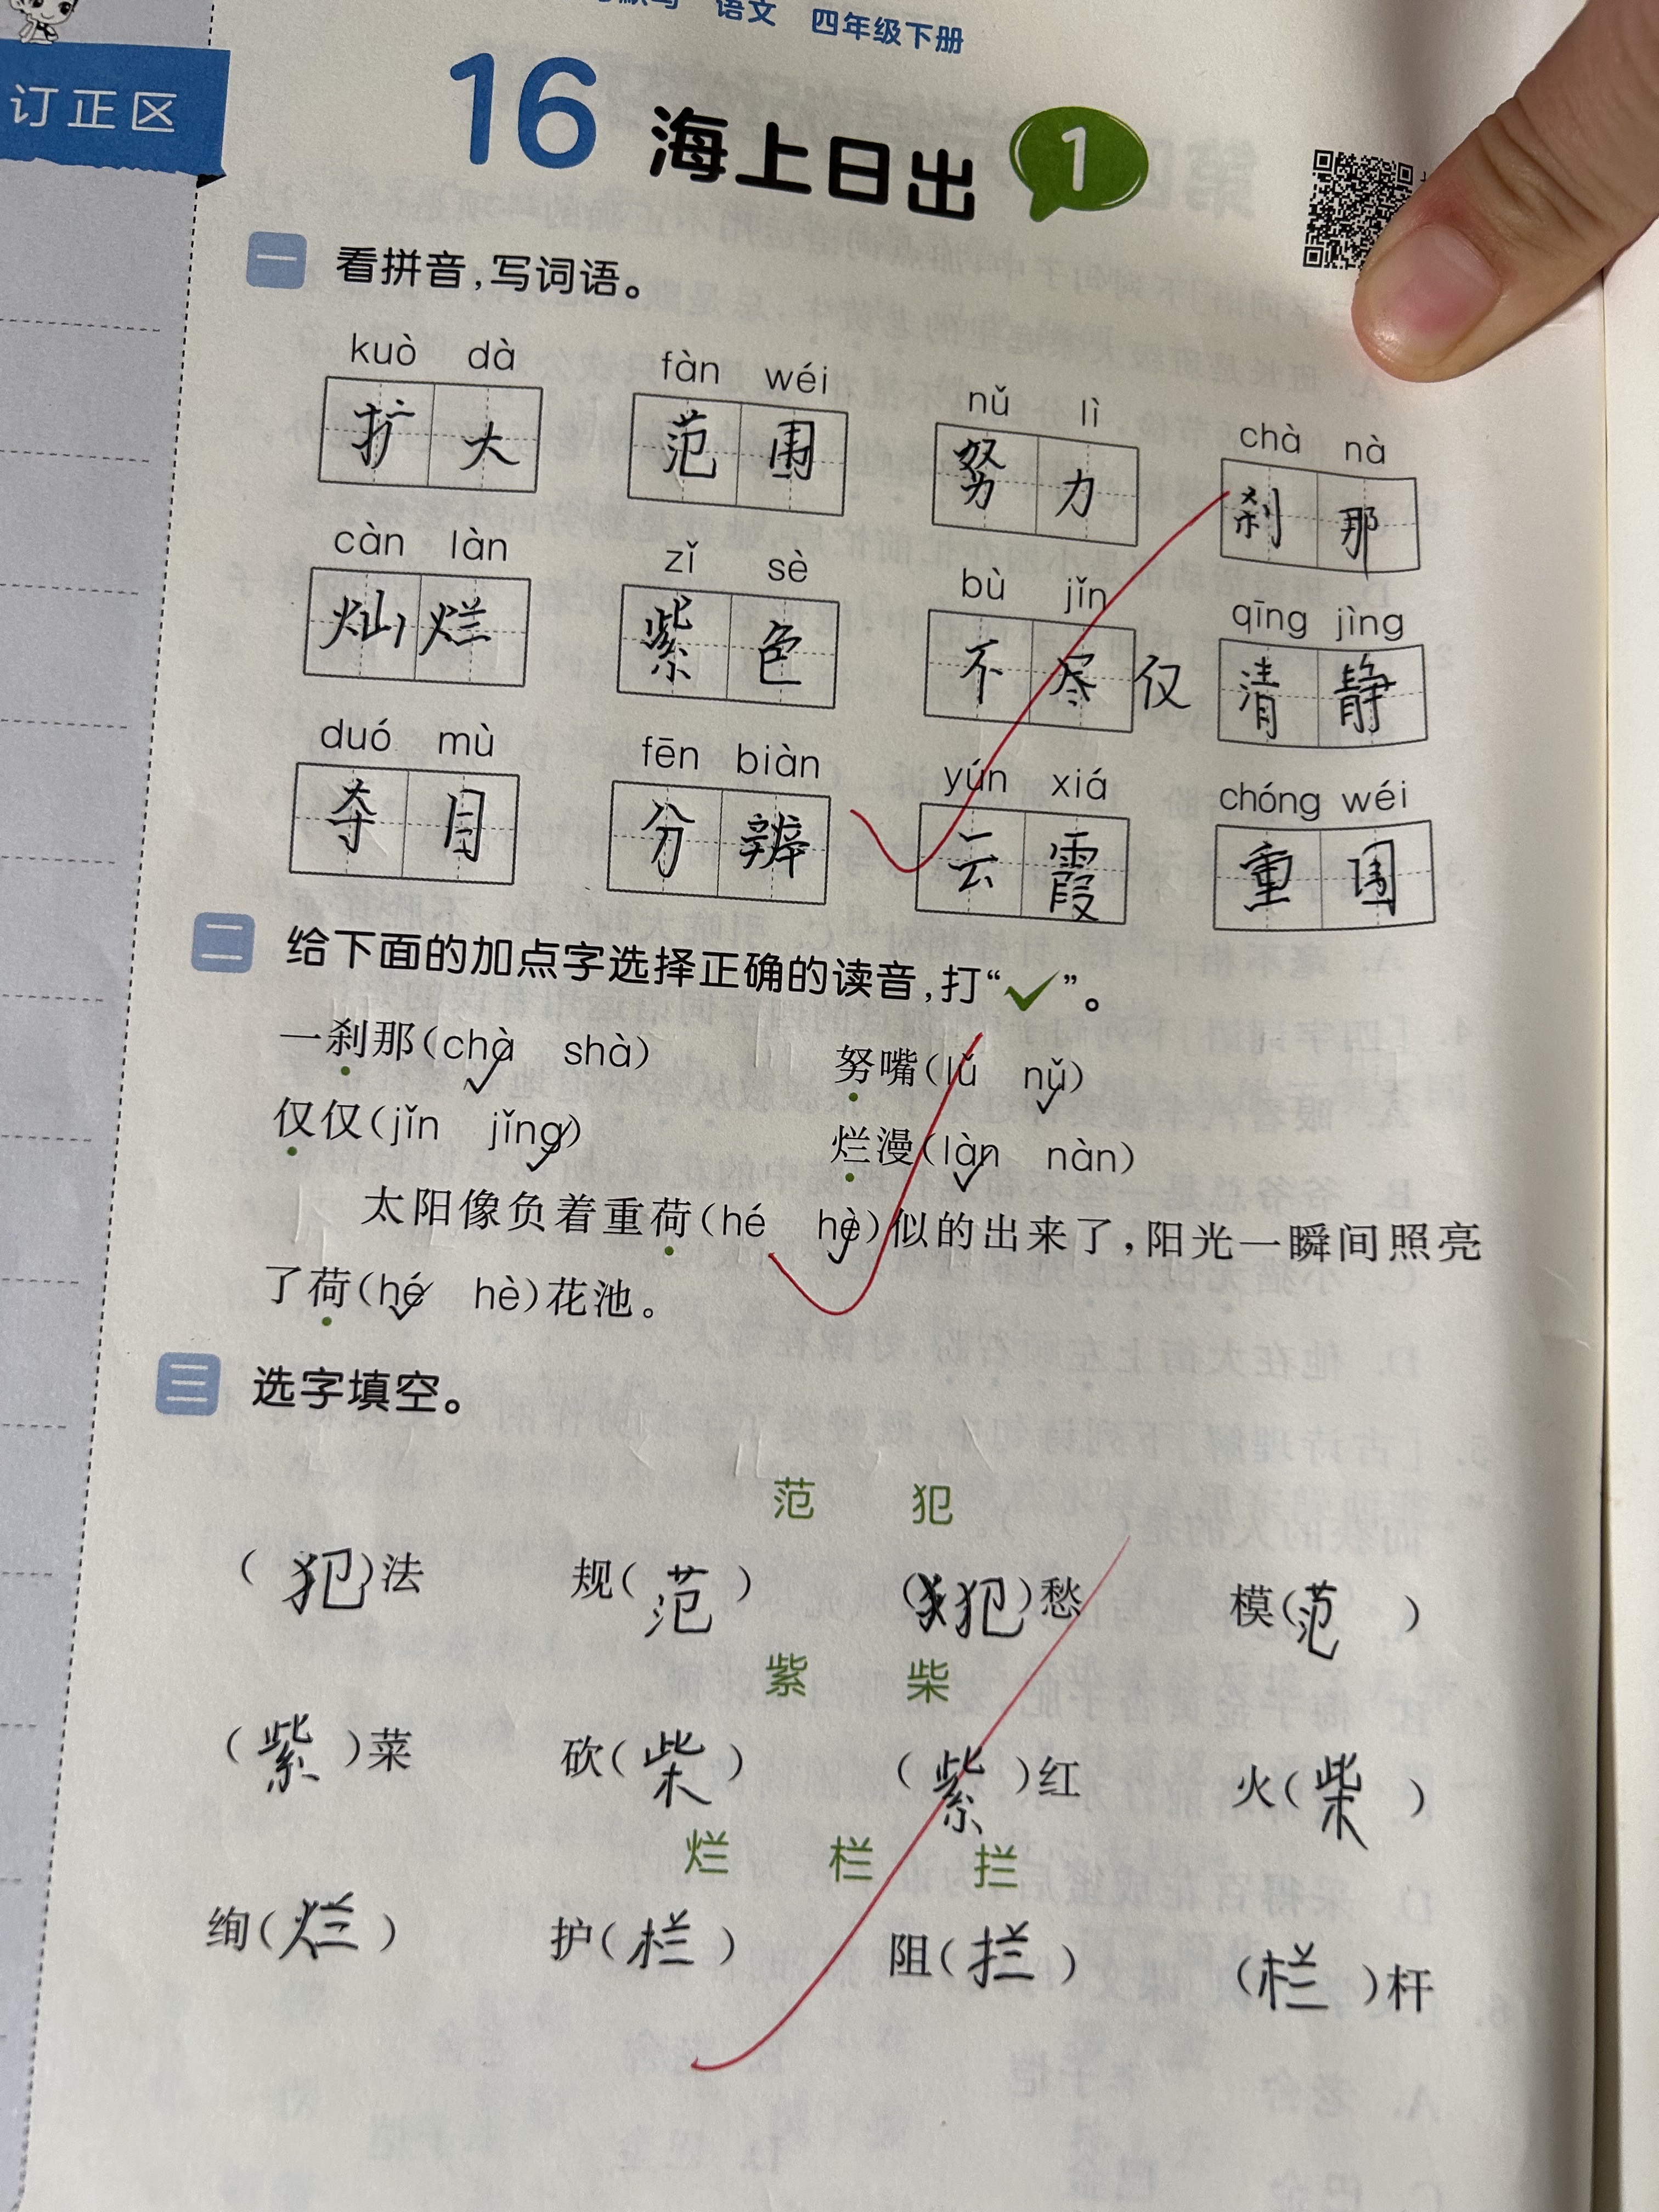 语文 四年级下册
订正区
16 海上日出 1
一 看拼音,写词语。
kuò dà fàn wéi nǔ lì chà nà
扩大 范围 努力 刹那
càn làn zǐ sè bù jǐn qīng jìng
灿烂 紫色 不尽仅 清静
duó mù fēn biàn yún xiá chóng wéi
夺目 分辨 云霞 重围
二 给下面的加点字选择正确的读音,打“✓”。
一刹那(chà shà) 努嘴(lǔ nǔ)
仅仅(jǐn jǐng) 烂漫(làn nàn)
太阳像负着重荷(hé hè)似的出来了,阳光一瞬间照亮
了荷(hé hè)花池。
三 选字填空。
范 犯
(犯)法 规(范) (犯)愁 模(范)
紫 柴
(紫)菜 砍(柴) (紫)红 火(柴)
烂 栏 拦
绚(烂) 护(栏) 阻(拦) (栏)杆